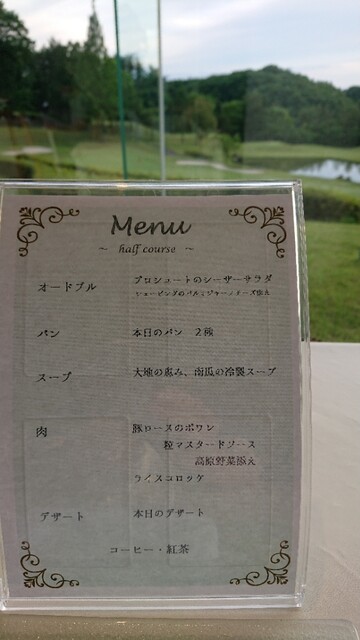 Menu
～ half course ～
オードブル プロシュートのシーザーサラダ
パルミジャーノチーズ添え
パン 本日のパン 2種
スープ 大地の恵み、南瓜の冷製スープ
肉 豚ロースのポワレ
粒マスタードソース
高原野菜添え
ライスコロッケ
デザート 本日のデザート
コーヒー・紅茶